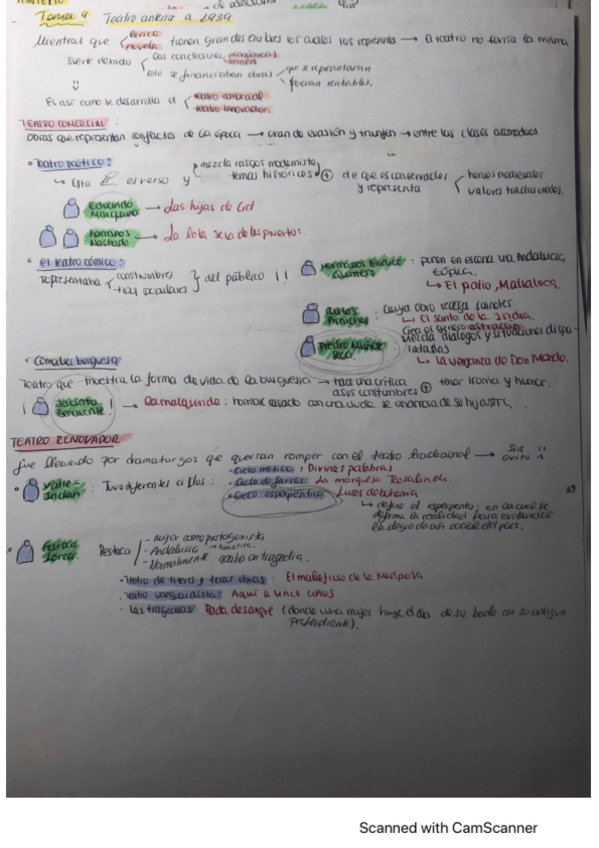 Tema 4 Teatro anterior a 1939.
Mientras que lírica novela tienen grandes cumbres los cuales los representa → El teatro no corría la misma
suerte debido las condiciones económicas sociales
solo se financiaban obras que se representaran fueran rentables.
Es así como se desarrolla el teatro comercial
teatro innovacion
TEATRO COMERCIAL :
obras que representan conflictos de la época → eran de evasión y triunfan → entre las clases acomodadas
• Teatro poético:
↳ Esta en verso y mezcla rasgos modernista temas históricos + de que es conservador y representa heroes medievales
valores tradicionales.
Eduardo Marquina → Las hijas de Cid
Hermanos Machado → La Lola se va de los puertos.
• El teatro cómico:
representaba costumbres
tipos populares } del público ¡!
Hermanos Álvarez Quintero : ponen en escena una Andalucía, típica.
↳ El patio, Malvaloca.
Carlos Arniches : cuya obra sainetes
↳ El santo de la Isidra.
Pedro Muñoz Seca : Crea el género astracán
Mezcla diálogos y situaciones disparatadas
↳ La venganza de Don Mendo.
• Comedia burguesa
Teatro que muestra la forma de vida de la burguesía → hace una crítica a sus costumbres + tono ironico y humor.
¡ Jacinto Benavente ! → La malquerida : hombre casado con una viuda se enamora de su hijastra.
TEATRO RENOVADOR
fue llevado por dramaturgos que querían romper con el teatro tradicional → Sin éxito
• Valle-Inclan : Tuvo diferentes ciclos: • Ciclo mítico : Divinas palabras
• Ciclo de farsas: La marquesa Rosalinda.
• Ciclo esperpéntico Luces de bohemia
↳ define el esperpento, en la cual se deforma la realidad para evidenciar la degradación social del país.
• García Lorca : Destaca - mujer como protagonista
- Andalucía → temática.
- Normalmente acaba en tragedia.
• Teatro de títeres y otras obras: El maleficio de la Mariposa
• Teatro vanguardista: Así que pasen cinco años
• Las tragedias: Boda de sangre (donde una mujer huye el día de su boda con su antiguo
pretendiente).
Scanned with CamScanner